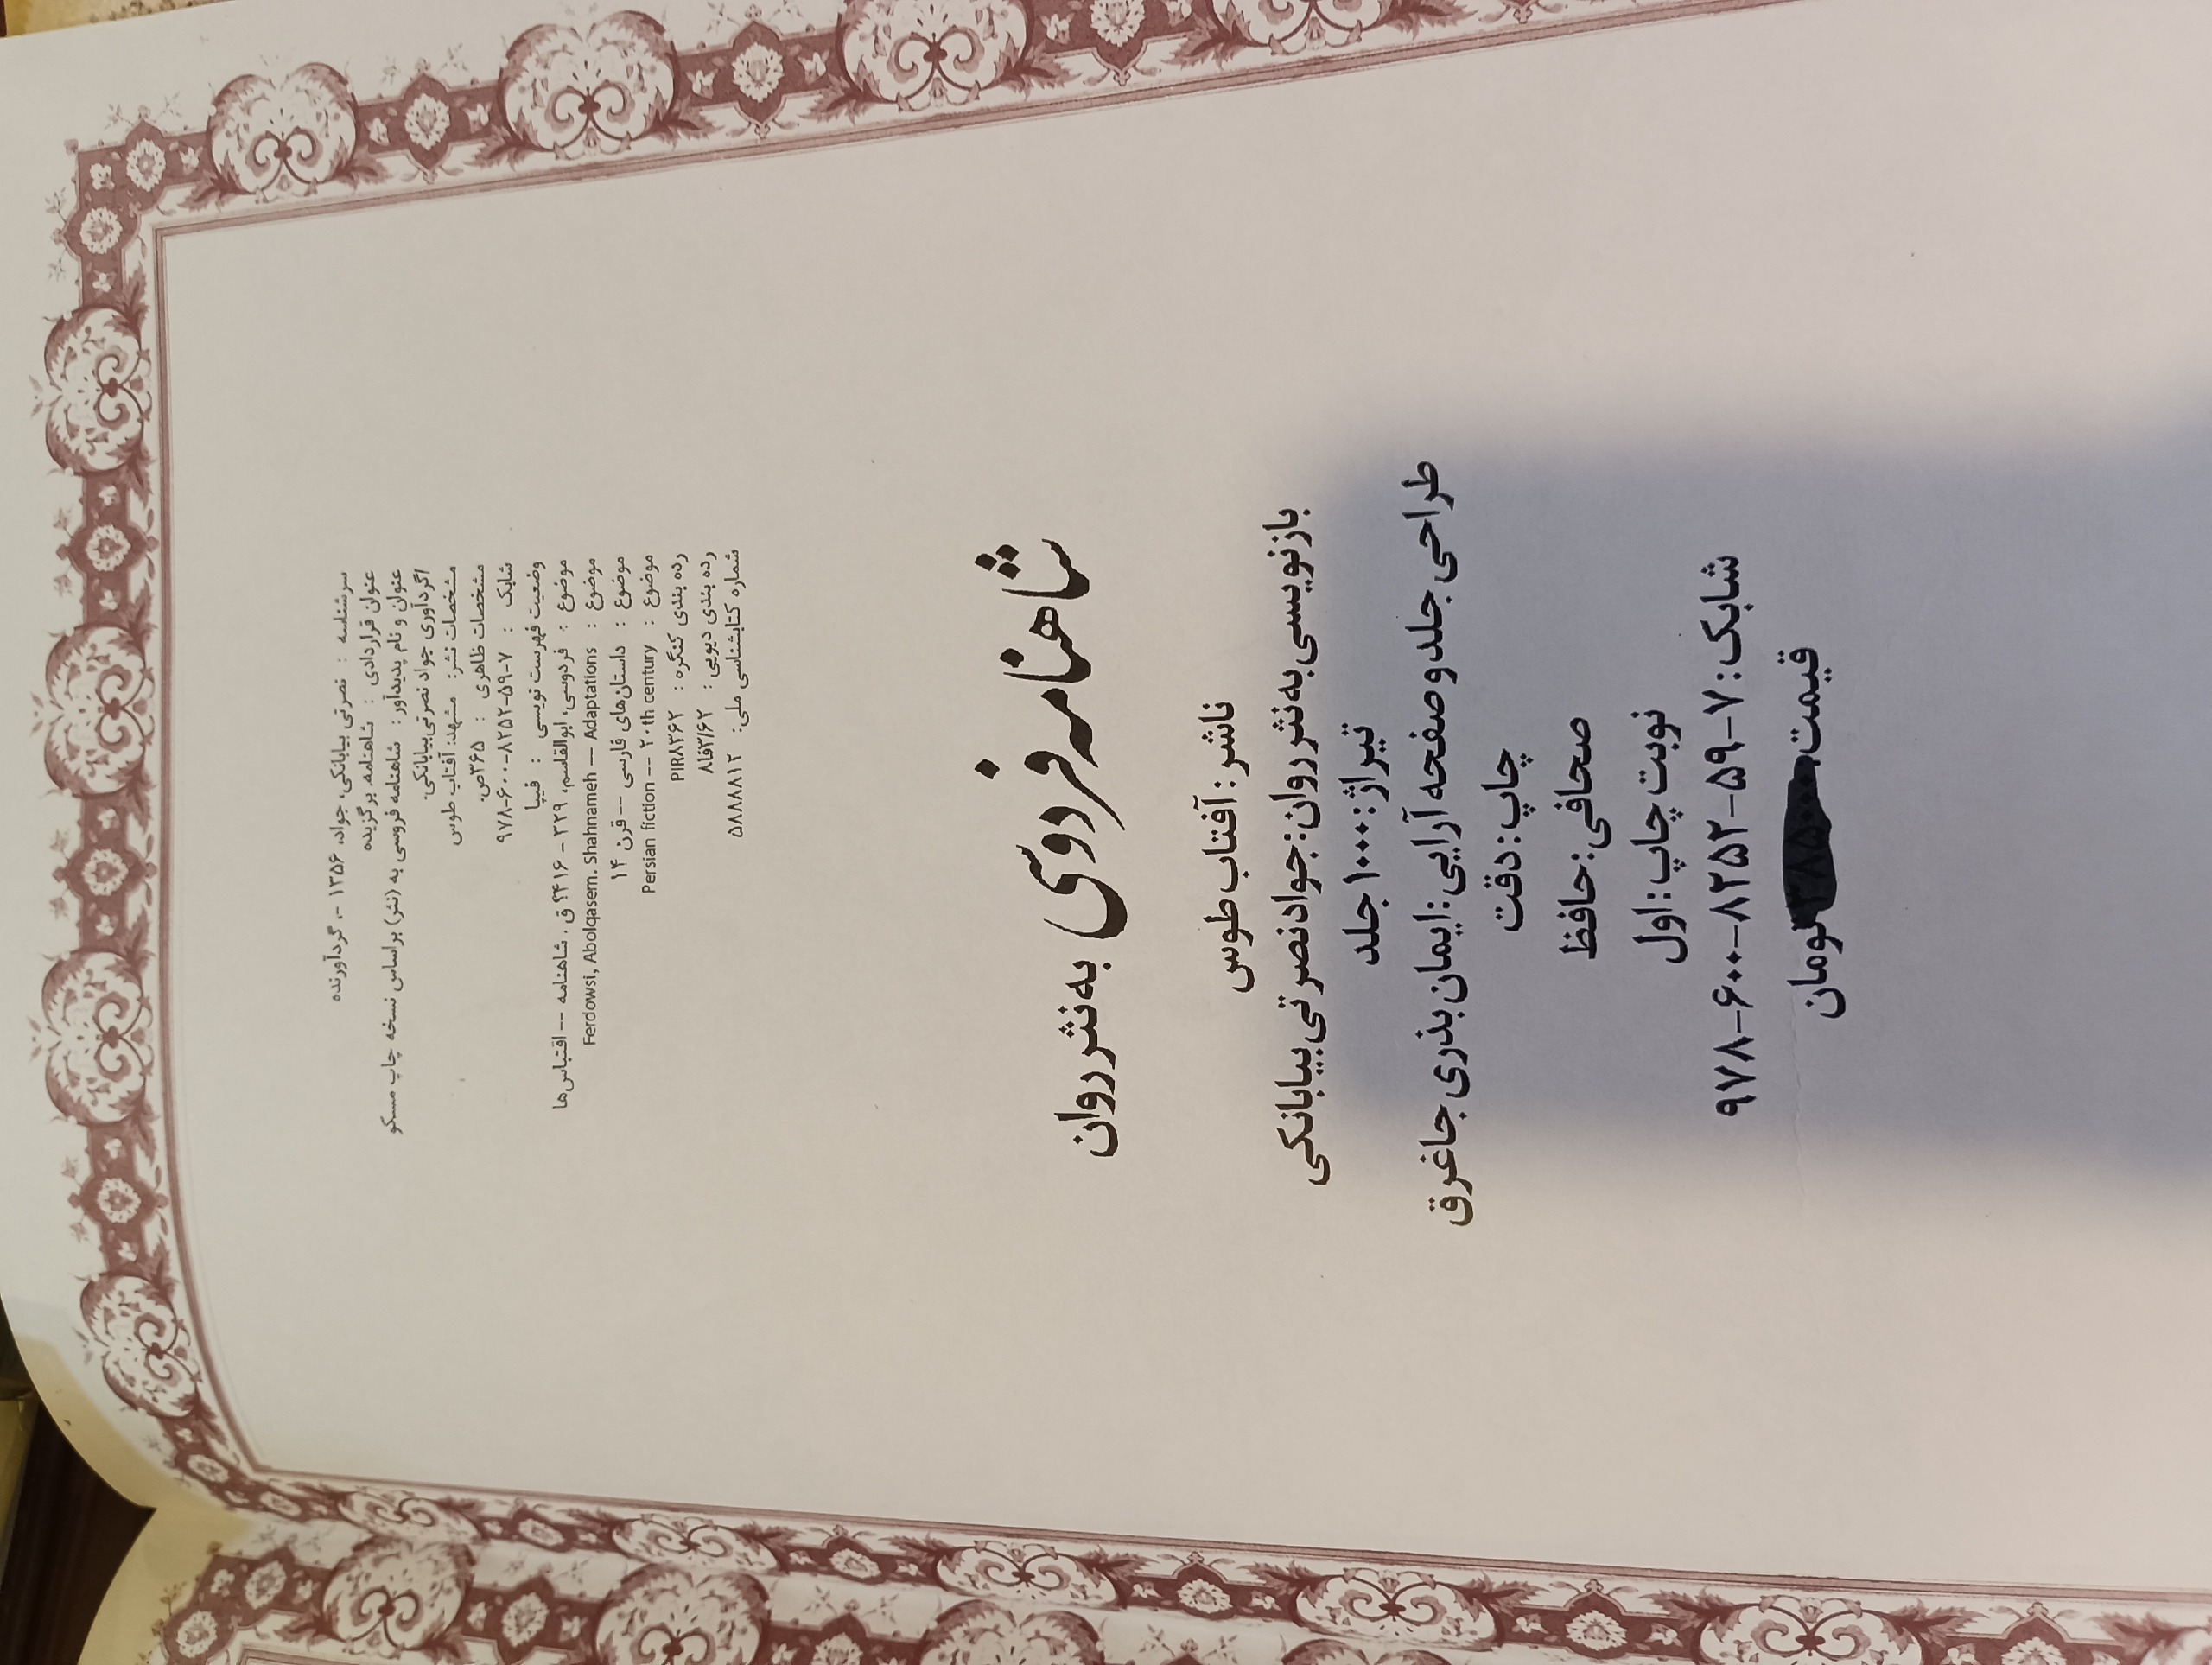 سرشناسه : نصرتی بیابانکی، جواد، ۱۳۵۶ -، گردآورنده
عنوان قراردادی : شاهنامه. برگزیده
عنوان و نام پدیدآور : شاهنامه فروسی به (نثر) براساس نسخه چاپ مسکو
/گردآوری جواد نصرتی‌بیابانکی.
مشخصات نشر: مشهد: آفتاب طوس
مشخصات ظاهری : ۳۶۵ص.
شابک : ۹۷۸-۶۰۰-۸۲۵۲-۵۹-۷
وضعیت فهرست نویسی : فیپا
موضوع : فردوسی، ابوالقاسم، ۳۲۹ - ۴۱۶؟ ق . شاهنامه -- اقتباس‌ها
موضوع : Ferdowsi, Abolqasem. Shahnameh -- Adaptations
موضوع : داستان‌های فارسی -- قرن ۱۴
موضوع : Persian fiction -- ۲۰th century
رده بندی کنگره : PIR۸۳۶۲
رده بندی دیویی : ۸فا۳/۶۲
شماره کتابشناسی ملی: ۵۸۸۸۸۱۲
شاهنامه فردوسی به نثر روان
ناشر : آفتاب طوس
بازنویسی به نثر روان : جواد نصرتی بیابانکی
تیراژ : ۱۰۰۰ جلد
طراحی جلد و صفحه آرایی : ایمان بذری جاغرق
چاپ : دقت
صحافی : حافظ
نوبت چاپ : اول
شابک : ۷-۵۹-۸۲۵۲-۶۰۰-۹۷۸
قیمت تومان